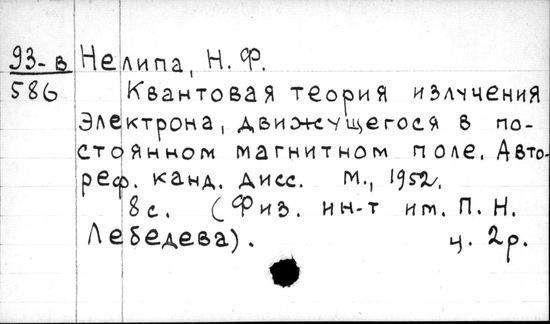 93-в Нелипа, Н. Ф.
586 Квантовая теория излучения
электрона, движущегося в по-
стоянном магнитном поле. Авто-
реф. канд. дисс. М., 1952.
8 с. (Физ. ин-т им. П. Н.
Лебедева). ц. 2 р.